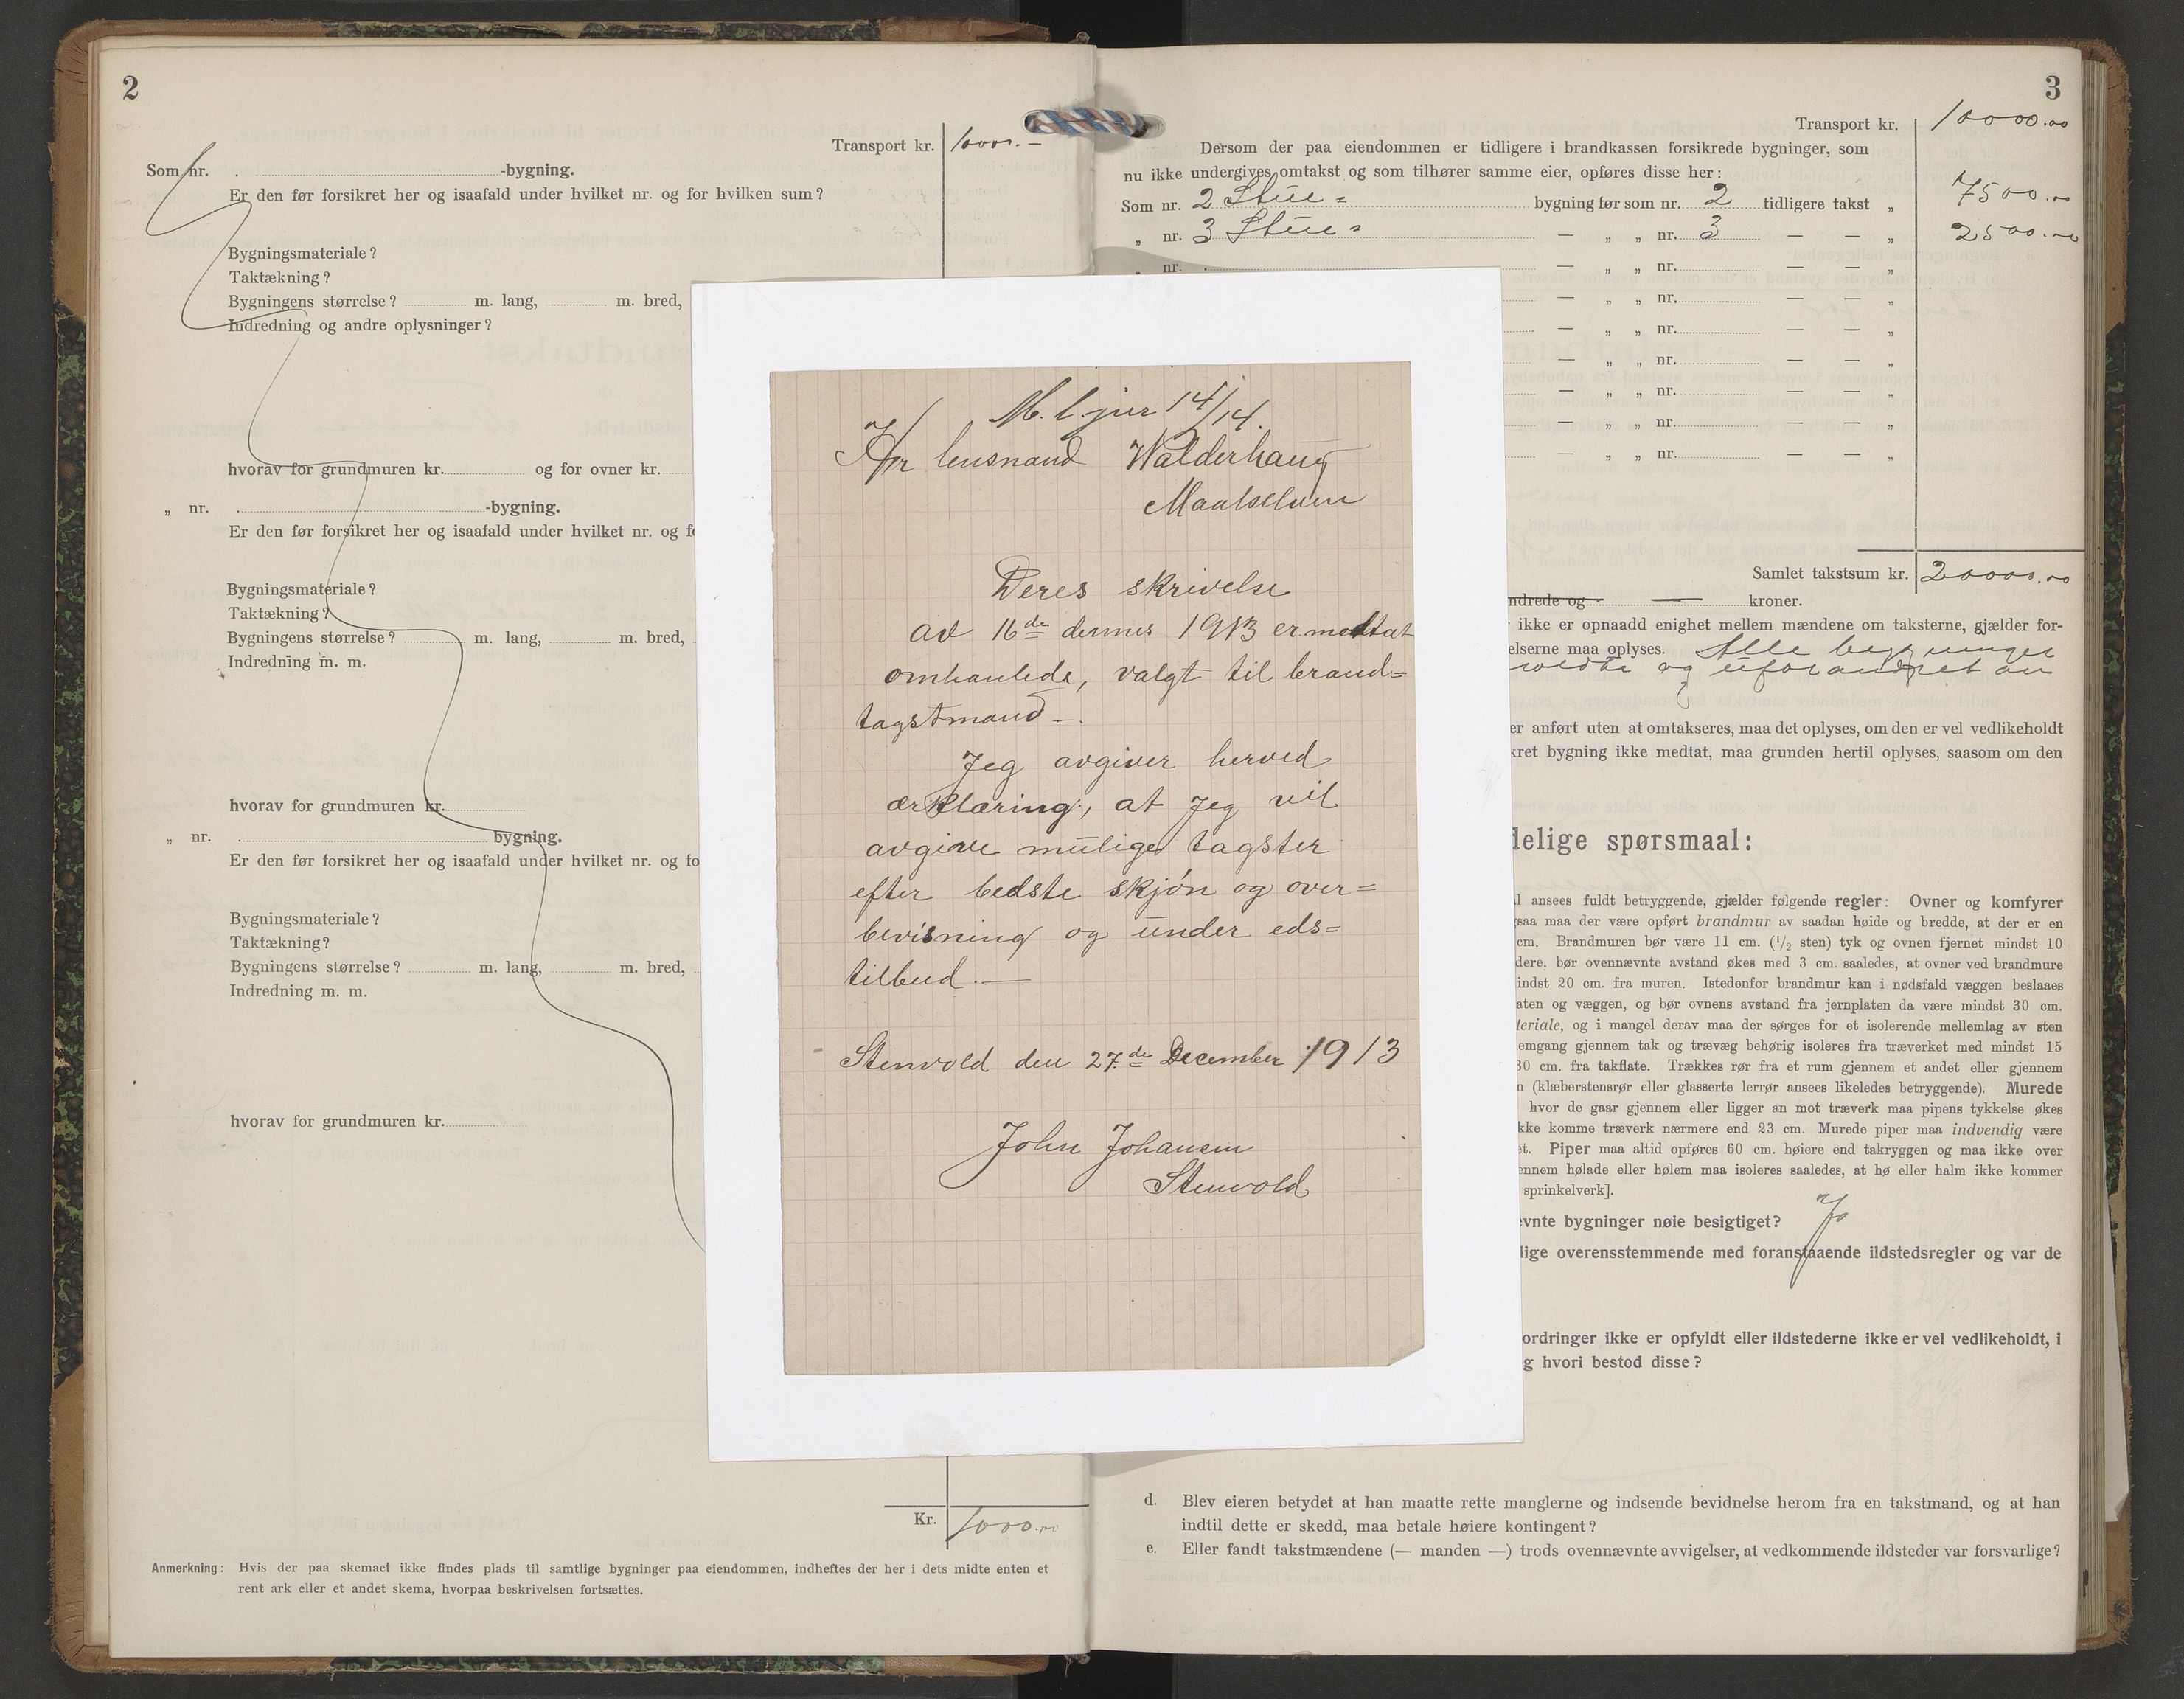 2
Transport kr. 1000.-
Som nr. -bygning.
Er den før forsikret her og isaafald under hvilket nr. og for hvilken sum?
Bygningsmateriale?
Taktækning?
Bygningens størrelse? m. lang, m. bred,
Indredning og andre oplysninger?
hvorav for grundmuren kr. og for ovner kr.
„ nr. -bygning.
Er den før forsikret her og isaafald under hvilket nr. og fo
Bygningsmateriale?
Taktækning?
Bygningens størrelse? m. lang, m. bred,
Indredning m. m.
hvorav for grundmuren kr.
„ nr. bygning.
Er den før forsikret her og isaafald under hvilket nr. og fo
Bygningsmateriale?
Taktækning?
Bygningens størrelse? m. lang, m. bred,
Indredning m. m.
hvorav for grundmuren kr.
Kr. 1000.00
Anmerkning: Hvis der paa skemaet ikke findes plads til samtlige bygninger paa eiendommen, indheftes der her i dets midte enten et
rent ark eller et andet skema, hvorpaa beskrivelsen fortsættes.
M. l. jnr 14/14.
Hr lensmand Walderhaug
Maalselven
Deres skrivelse
av 16de dennes 1913 er mottat
omhanlede, valgt til brand=
tagstmand -.
Jeg avgiver herved
ærklæring, at Jeg vil
avgive mulige tagster
efter bedste skjøn og over=
bevisning og under eds=
tilbud.—
Stenvold den 27.de December 1913
John Johansen
Stenvold
3
Transport kr. 10000.00
Dersom der paa eiendommen er tidligere i brandkassen forsikrede bygninger, som
nu ikke undergives omtakst og som tilhører samme eier, opføres disse her:
Som nr. 2 Stue = bygning før som nr. 2 tidligere takst „ 7500.00
„ nr. 3 Stue = — „ „ nr. 3 — — „ 2500.00
„ nr. — „ „ nr. — — „
— „ „ nr. — — „
— „ „ nr. — — „
— „ „ nr. — — „
— „ „ nr. — — „
— „ „ nr. — — „
— „ „ nr. — — „
Samlet takstsum kr. 20000.00
ndrede og — kroner.
ikke er opnaadd enighet mellem mændene om taksterne, gjælder for-
elserne maa oplyses. Alle bygninger
og uforandret an
er anført uten at omtakseres, maa det oplyses, om den er vel vedlikeholdt
kret bygning ikke medtat, maa grunden hertil oplyses, saasom om den
delige spørsmaal:
l ansees fuldt betryggende, gjælder følgende regler: Ovner og komfyrer
gsaa maa der være opført brandmur av saadan høide og bredde, at der er en
cm. Brandmuren bør være 11 cm. (1/2 sten) tyk og ovnen fjernet mindst 10
dere, bør ovennævnte avstand økes med 3 cm. saaledes, at ovner ved brandmure
indst 20 cm. fra muren. Istedenfor brandmur kan i nødsfald væggen beslaaes
aten og væggen, og bør ovnens avstand fra jernplaten da være mindst 30 cm.
teriale, og i mangel derav maa der sørges for et isolerende mellemlag av sten
emgang gjennem tak og trævæg behørig isoleres fra træverket med mindst 15
30 cm. fra takflate. Trækkes rør fra et rum gjennem et andet eller gjennem
n (klæberstensrør eller glasserte lerrør ansees likeledes betryggende). Murede
hvor de gaar gjennem eller ligger an mot træverk maa pipens tykkelse økes
kke komme træverk nærmere end 23 cm. Murede piper maa indvendig være
et. Piper maa altid opføres 60 cm. høiere end takryggen og maa ikke over
ennem hølade eller hølem maa isoleres saaledes, at hø eller halm ikke kommer
sprinkelverk].
evnte bygninger nøie besigtiget? Ja
lige overensstemmende med foranstaaende ildstedsregler og var de
ordringer ikke er opfyldt eller ildstederne ikke er vel vedlikeholdt, i
g hvori bestod disse?
d. Blev eieren betydet at han maatte rette manglerne og indsende bevidnelse herom fra en takstmand, og at han
indtil dette er skedd, maa betale høiere kontingent?
e. Eller fandt takstmændene (— manden —) trods ovennævnte avvigelser, at vedkommende ildsteder var forsvarlige?